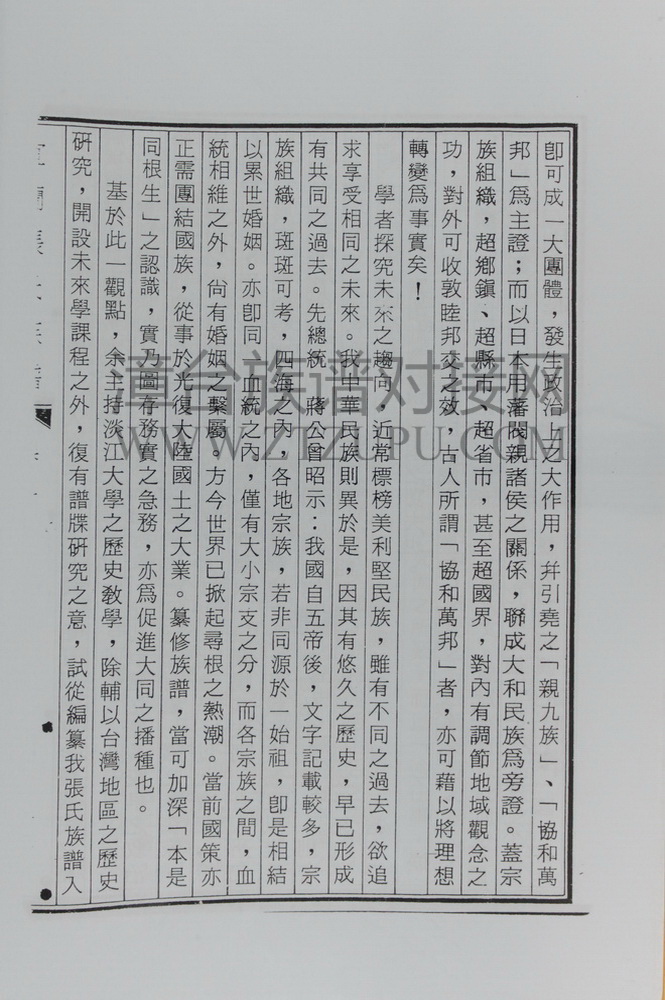 卽可成一大團體，發生政治上之大作用，幷引堯之「親九族」、「協和萬
邦」爲主證；而以日本用藩閥親諸侯之關係，聯成大和民族爲旁證。蓋宗
族組織，超鄉鎮、超縣市、超省市，甚至超國界，對內有調節地域觀念之
功，對外可收敦睦邦交之效，古人所謂「協和萬邦」者，亦可藉以將理想
轉變爲事實矣！
學者探究未來之趨向，近常標榜美利堅民族，雖有不同之過去，欲追
求享受相同之未來。我中華民族則異於是，因其有悠久之歷史，早已形成
有共同之過去。先總統　蔣公曾昭示：我國自五帝後，文字記載較多，宗
族組織，斑斑可考，四海之內，各地宗族，若非同源於一始祖，卽是相結
以累世婚姻。亦卽同一血統之內，僅有大小宗支之分，而各宗族之間，血
統相維之外，尙有婚姻之繫屬。方今世界已掀起尋根之熱潮。當前國策亦
正需團結國族，從事於光復大陸國土之大業。纂修族譜，當可加深「本是
同根生」之認識，實乃圖存務實之急務，亦爲促進大同之播種也。
基於此一觀點，余主持淡江大學之歷史敎學，除輔以台灣地區之歷史
硏究，開設未來學課程之外，復有譜牒硏究之意，試從編纂我張氏族譜入
漳台族谱对接网
WWW.ZTZUPU.COM